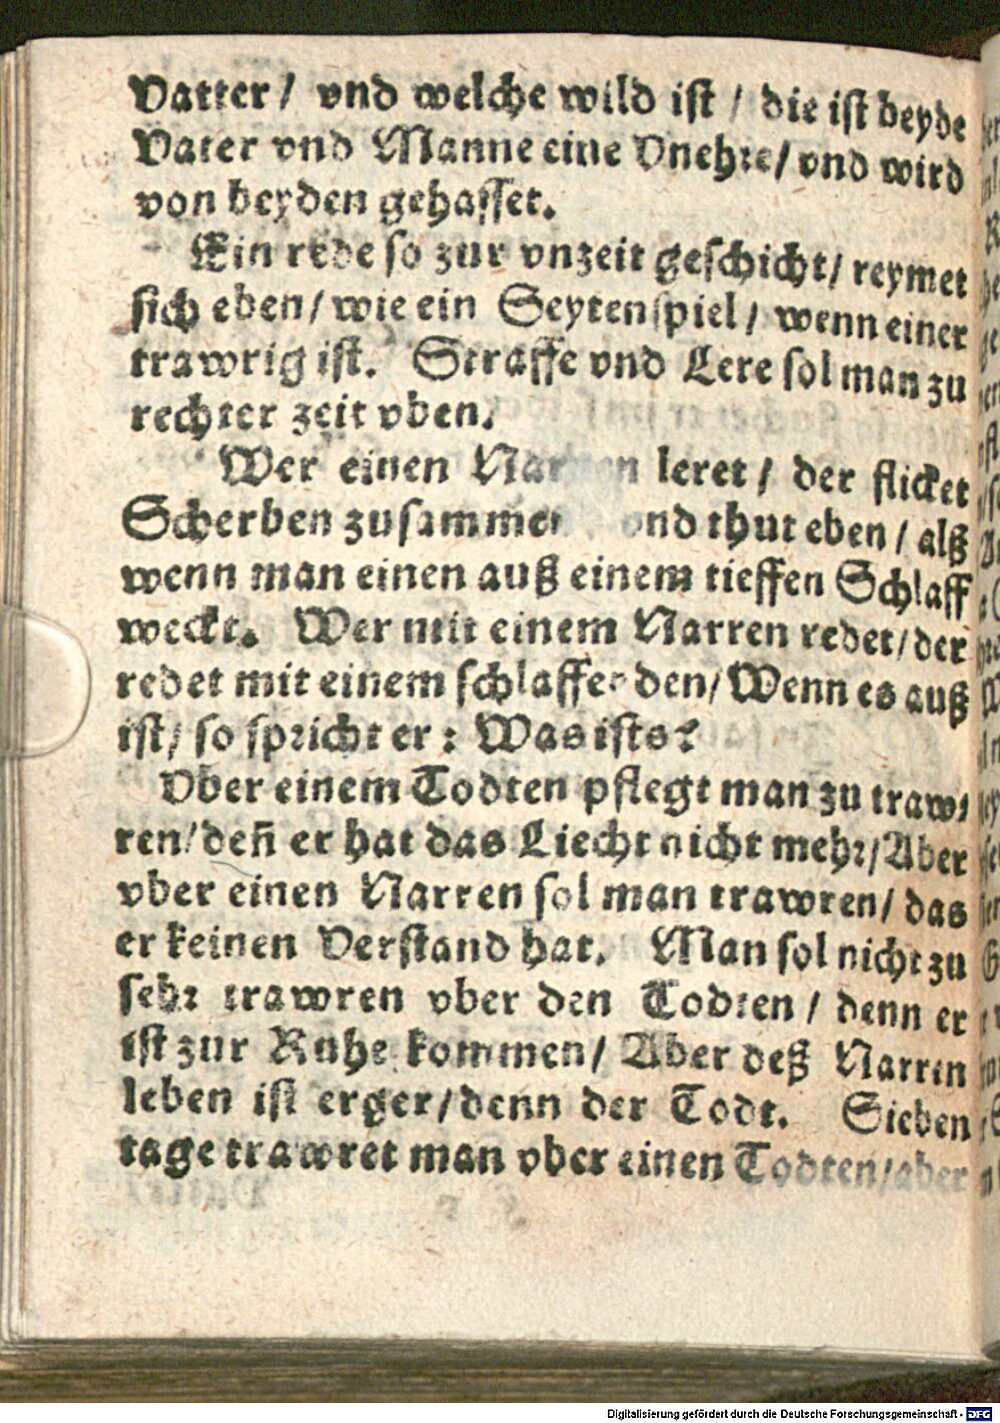 Vatter / vnd welche wild ist / die ist beyde
Vater vnd Manne eine Vnehre / vnd wird
von beyden gehasset.
Ein rede so zur vnzeit geschicht / reymet
sich eben / wie ein Seytenspiel / wenn einer
trawrig ist. Straffe vnd Lere sol man zu
rechter zeit vben.
Wer einen Narren leret / der flicket
Scherben zusammen vnd thut eben / alß
wenn man einen auß einem tieffen Schlaff
weckt. Wer mit einem Narren redet / der
redet mit einem schlaffenden / Wenn es auß
ist / so spricht er : Was ists?
Vber einem Todten pflegt man zu traw-
ren / deñ er hat das Liecht nicht mehr / Aber
vber einen Narren sol man trawren / das
er keinen Verstand hat. Man sol nicht zu
sehr trawren vber den Todten / denn er
ist zur Ruhe kommen / Aber deß Narren
leben ist erger / denn der Todt. Sieben
tage trawret man vber einen Todten / aber
Digitalisierung gefördert durch die Deutsche Forschungsgemeinschaft - DFG